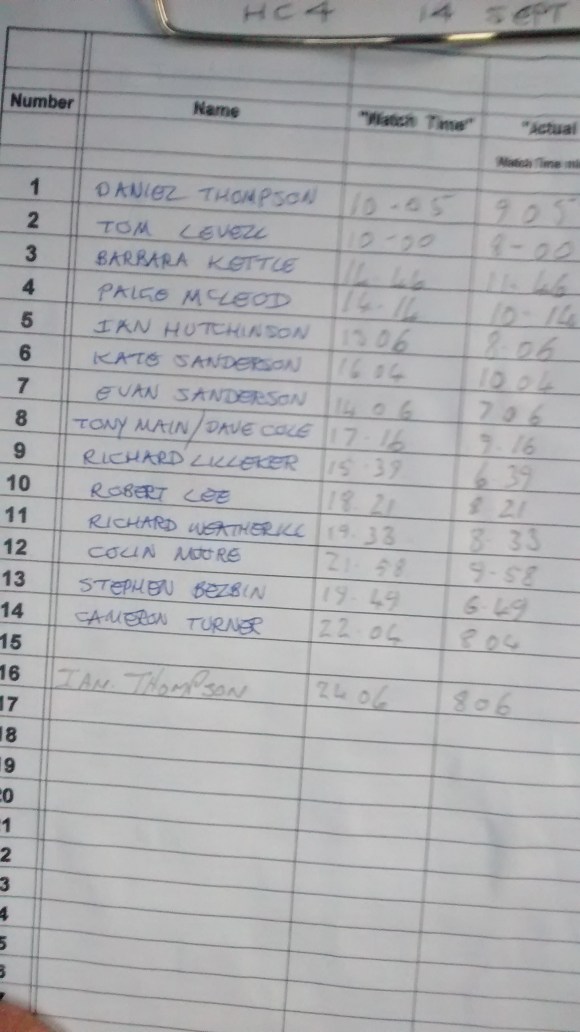 HC4 14 SEPT
Number Name "Watch Time" "Actual
Watch Time mi
1 DANIEL THOMPSON 10-05 905
2 TOM LEVELL 10-00 8-00
3 BARBARA KETTLE 14.46 11.46
4 PAIGE MCLEOD 14-14 10-14
5 IAN HUTCHINSON 1306 8.06
6 KATE SANDERSON 16 04 10 04
7 EVAN SANDERSON 14 06 7 06
8 TONY MAIN/DAVE COLE 17-16 9.16
9 RICHARD LILLEKER 15.39 6 39
10 ROBERT LEE 18 21 8 21
11 RICHARD WEATHERILL 19.33 8.33
12 COLIN MOORE 21.58 9-58
13 STEPHEN BEZBIN 19.49 6.49
14 CAMERON TURNER 22.04 8 04
15
16 IAN THOMPSON 24 06 8 06
17
18
19
20
1
2
3
4
5